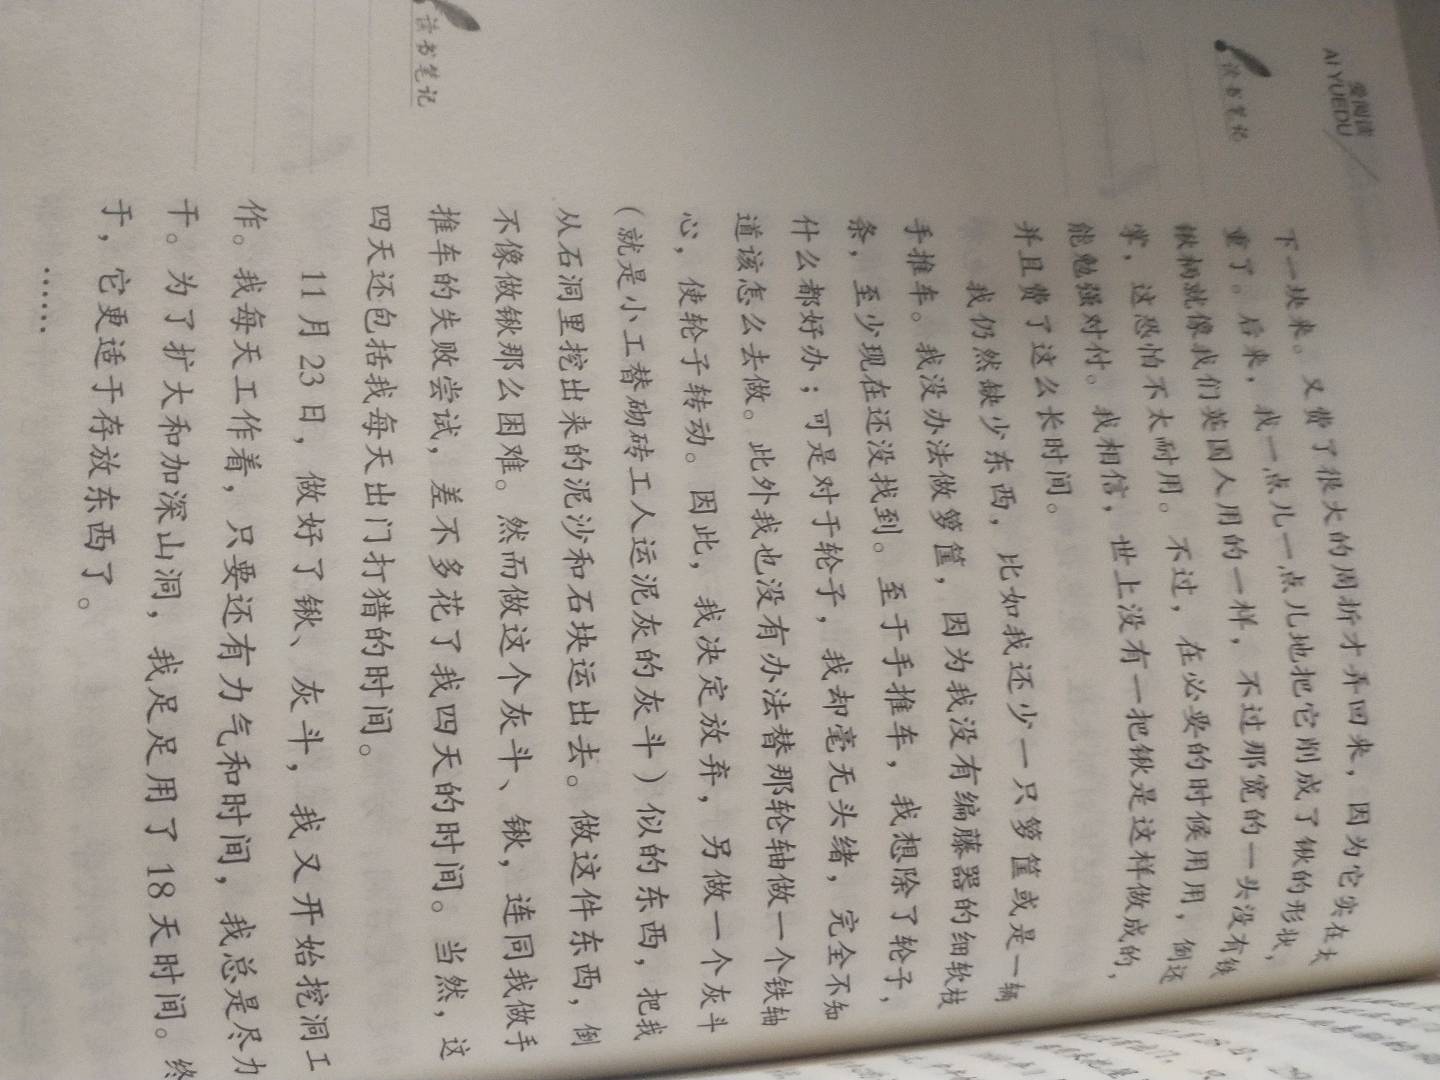 爱阅读
AI YUEDU
读书笔记
下一块来。又费了很大的周折才弄回来，因为它实在太
重了。后来，我一点儿一点儿地把它削成了锹的形状，
锹柄就像我们英国人用的一样，不过那宽的一头没有铁
掌，这恐怕不太耐用。不过，在必要的时候用用，倒还
能勉强对付。我相信，世上没有一把锹是这样做成的，
并且费了这么长时间。
我仍然缺少东西，比如我还少一只箩筐或是一辆
手推车。我没办法做箩筐，因为我没有编藤器的细软枝
条，至少现在还没找到。至于手推车，我想除了轮子，
什么都好办；可是对于轮子，我却毫无头绪，完全不知
道该怎么去做。此外我也没有办法替那轮轴做一个铁轴
心，使轮子转动。因此，我决定放弃，另做一个灰斗
（就是小工替砌砖工人运泥灰的灰斗）似的东西，把我
从石洞里挖出来的泥沙和石块运出去。做这件东西，倒
不像做锹那么困难。然而做这个灰斗、锹，连同我做手
推车的失败尝试，差不多花了我四天的时间。当然，这
四天还包括我每天出门打猎的时间。
读书笔记
11月23日，做好了锹、灰斗，我又开始挖洞工
作。我每天工作着，只要还有力气和时间，我总是尽力
干。为了扩大和加深山洞，我足足用了18天时间。终
于，它更适于存放东西了。
……